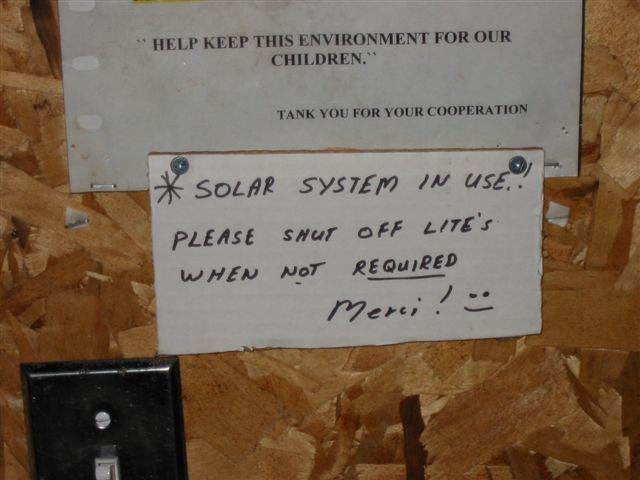 `` HELP KEEP THIS ENVIRONMENT FOR OUR
CHILDREN.``
TANK YOU FOR YOUR COOPERATION
* SOLAR SYSTEM IN USE..!
PLEASE SHUT OFF LITE'S
WHEN NOT REQUIRED
Merci! :)